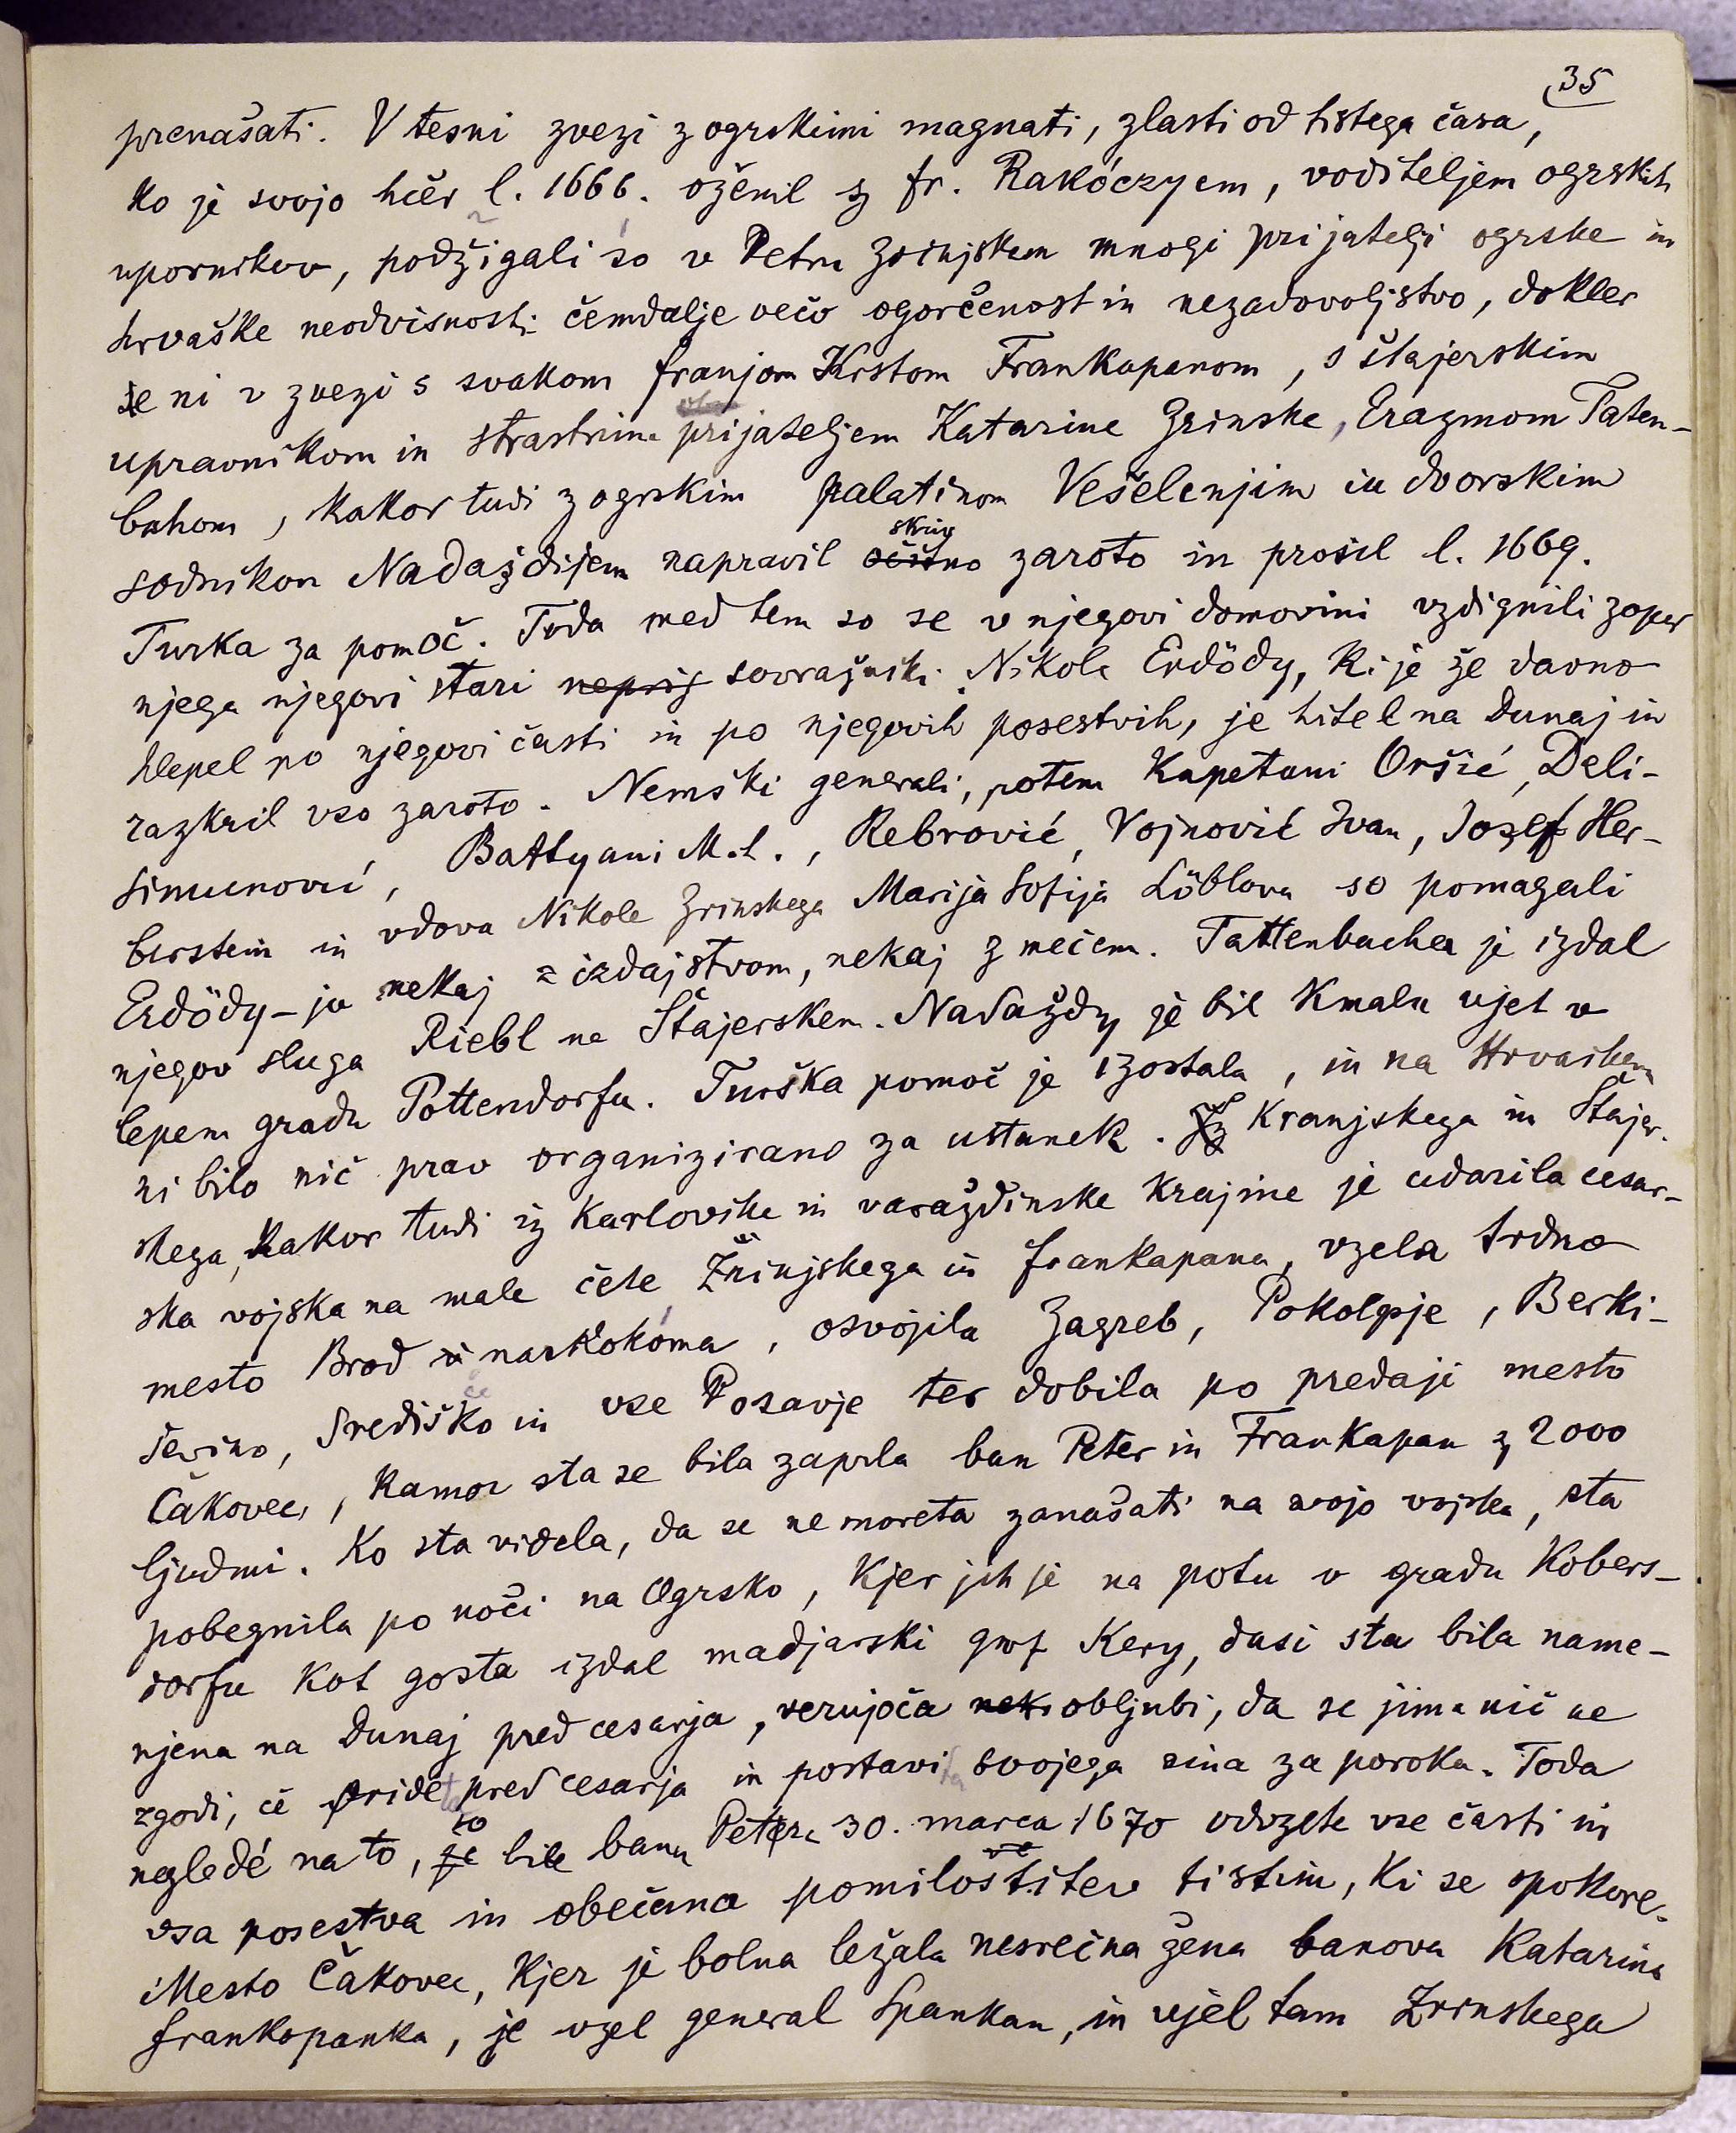 35
prenašati. V tesni zvezi z ogrskimi magnati, zlasti od tistega časa,
ko je svojo hčer l. 1666. oženil z fr. Rakóczyem, voditeljem ogrskih
upornikov, podžigali so v Petru Zrinjskem mnogi prijatelji ogrske in
hrvaške neodvisnosti čemdalje večo ogorčenost in nezadovoljstvo, dokler
se ni v zvezi s svakom franjom Krstom Frankapanom, s štajerskim
upravnikom in strastnim prijateljem Katarine Zrinske, Erazmom Taten-
bahom, kakor tudi z ogrskim palatinom Vešelenjim in dvorskim
sodnikom Nadaždijem napravil očitno skriv zaroto in prosil l. 1669.
Turka za pomoč. Toda med tem so se v njegovi domovini vzdignili zoper
njega njegovi stari neprij sovražniki. Nikola Erdödy, ki je že davno
hlepel po njegovi časti in po njegovih posestvih, je hitel na Dunaj in
razkril vso zaroto. Nemški generali, potem kapetani Oršić, Deli-
simunović, Battyani M. t., Rebrović, Vojnović Ivan, Josef Her-
berstein in vdova Nikole Zrinskega Marija Sofija Löblova so pomagali
Erdödy-ju nekaj z izdajstvom, nekaj z mečem. Tattenbacha je izdal
njegov sluga Riebl na Štajerskem. Nadaždy je bil kmalu ujet v
lepem gradu Pottendorfu. Turška pomoč je izostala, in na Hrvaškem
ni bilo nič prav organizirano za ustanek. Iz Kranjskega in Štajer-
skega, kakor tudi iz Karlovške in varaždinske krajine je udarila cesar-
ska vojska na male čete Zrinjskega in frankapana, vzela trdno
mesto Brod naskokoma, osvojila Zagreb, Pokolpje, Berki-
ševino, Središko in vse Posavje ter dobila po predaji mesto
Čakovec, kamor sta se bila zaprla ban Peter in Frankapan z 2000
ljudmi. Ko sta videla, da se ne moreta zanašati na svojo vojsko, sta
pobegnila po noči na Ogrsko, kjer jih je na potu v gradu Kobers-
dorfu kot gosta izdal madjarski grof Kery, dasi sta bila name-
njena na Dunaj pred cesarja, verujoča neki obljubi, da se jima nič ne
zgodi, če prideta pred cesarja in postavita svojega sina za poroka. Toda
negledé na to, je so bile banu Petru 30. marca 1670 odvzete vse časti in
vsa posestva in obečana pomilostitev tistim, ki se spokore.
Mesto Čakovec, kjer je bolna ležala nesrečna žena banova Katarina
frankopanka, je vzel general Spankau, in ujel tam Zrinskega